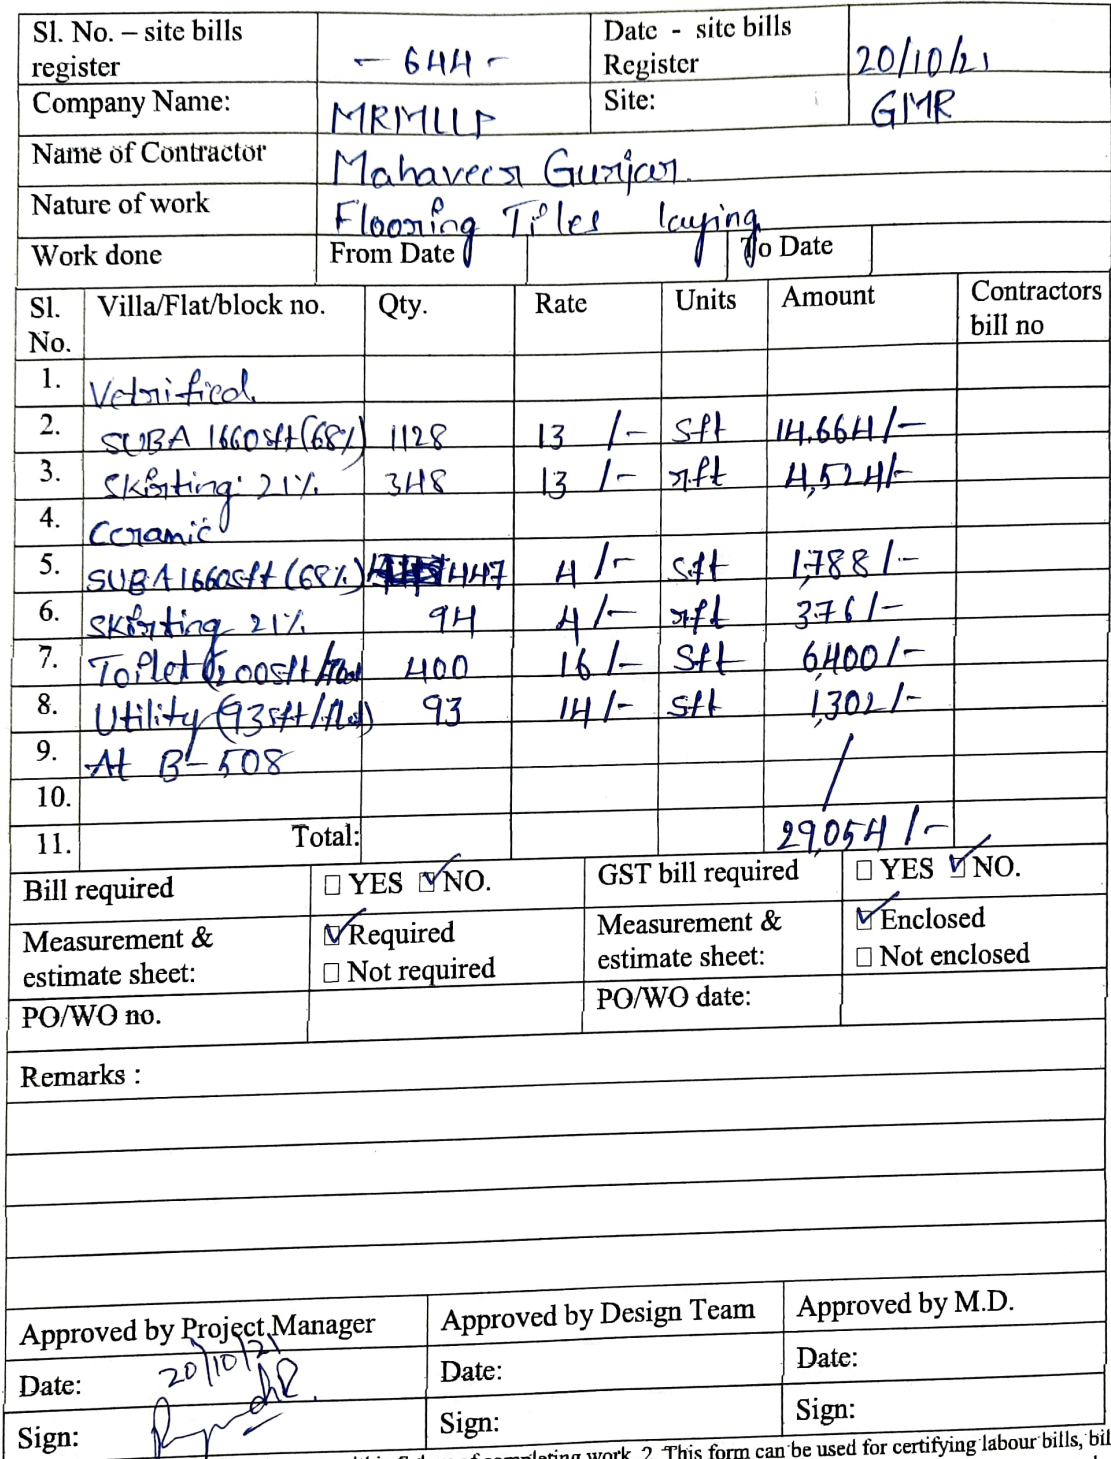 Sl. No. – site bills register - 644 - Date - site bills Register 20/10/21
Company Name: MRMLLP Site: GMR
Name of Contractor Mahaveer Gurjar.
Nature of work Flooring Tiles laying
Work done From Date To Date
Sl. No. Villa/Flat/block no. Qty. Rate Units Amount Contractors bill no
1. Vetrified.
2. SUBA 1660sft (68%) 1128 13 /- sft 14,664/-
3. Skirting: 21% 348 13 /- rft 4,524/-
4. Ceramic
5. SUBA 1660sft (68%) 447 4 /- sft 1,788/-
6. Skirting 21% 94 4/- rft 376/-
7. Toilet (200sft/flat 400 16 /- sft 6,400/-
8. Utility (93sft/flat) 93 14/- sft 1,302/-
9. At B-508
10.
11. Total: 29,054 /-
Bill required □ YES ☑ NO. GST bill required □ YES ☑ NO.
Measurement & estimate sheet: ☑ Required Measurement & estimate sheet: ☑ Enclosed
□ Not required □ Not enclosed
PO/WO no. PO/WO date:
Remarks :
Approved by Project Manager Approved by Design Team Approved by M.D.
Date: 20/10/21 Date: Date:
Sign: Sign: Sign:
completing work. 2. This form can be used for certifying labour bills,